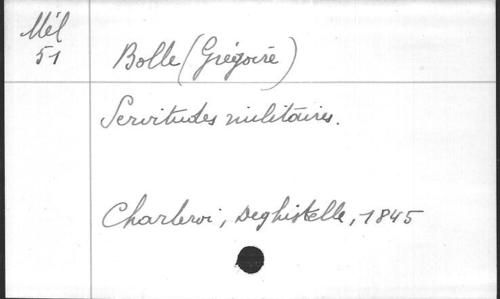 Mél
51
Bolle (Grégoire)
Servitudes militaires.
Charleroi, Deghistelle, 1845